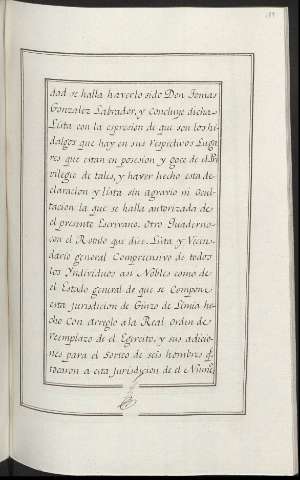 dad se halla haverlo sido Don Tomas
Gonzalez Labrador, y concluye dicha
Lista con la expresion de que son los hi
dalgos que hay en sus respectivos Luga
res que estan en posesion y goce de el Pri
vilegio de tales, y haver hecho esta de
claracion y lista sin agravio ni Ocul
tacion la que se halla autorizada de
el presente Escrivano: Otro Quaderno
con el Rotulo que dice: Lista y Vecin
dario general Comprensivo de todos
los Individuos asi Nobles como de
el Estado general de que se Compone
esta Jurisdicion de Ginzo de Limia he
cho con arreglo a la Real orden de
reemplazo de el Egercito, y sus adicio
nes para el Sorteo de seis hombres q.
tocaron a esta Jurisdicion de el Nume